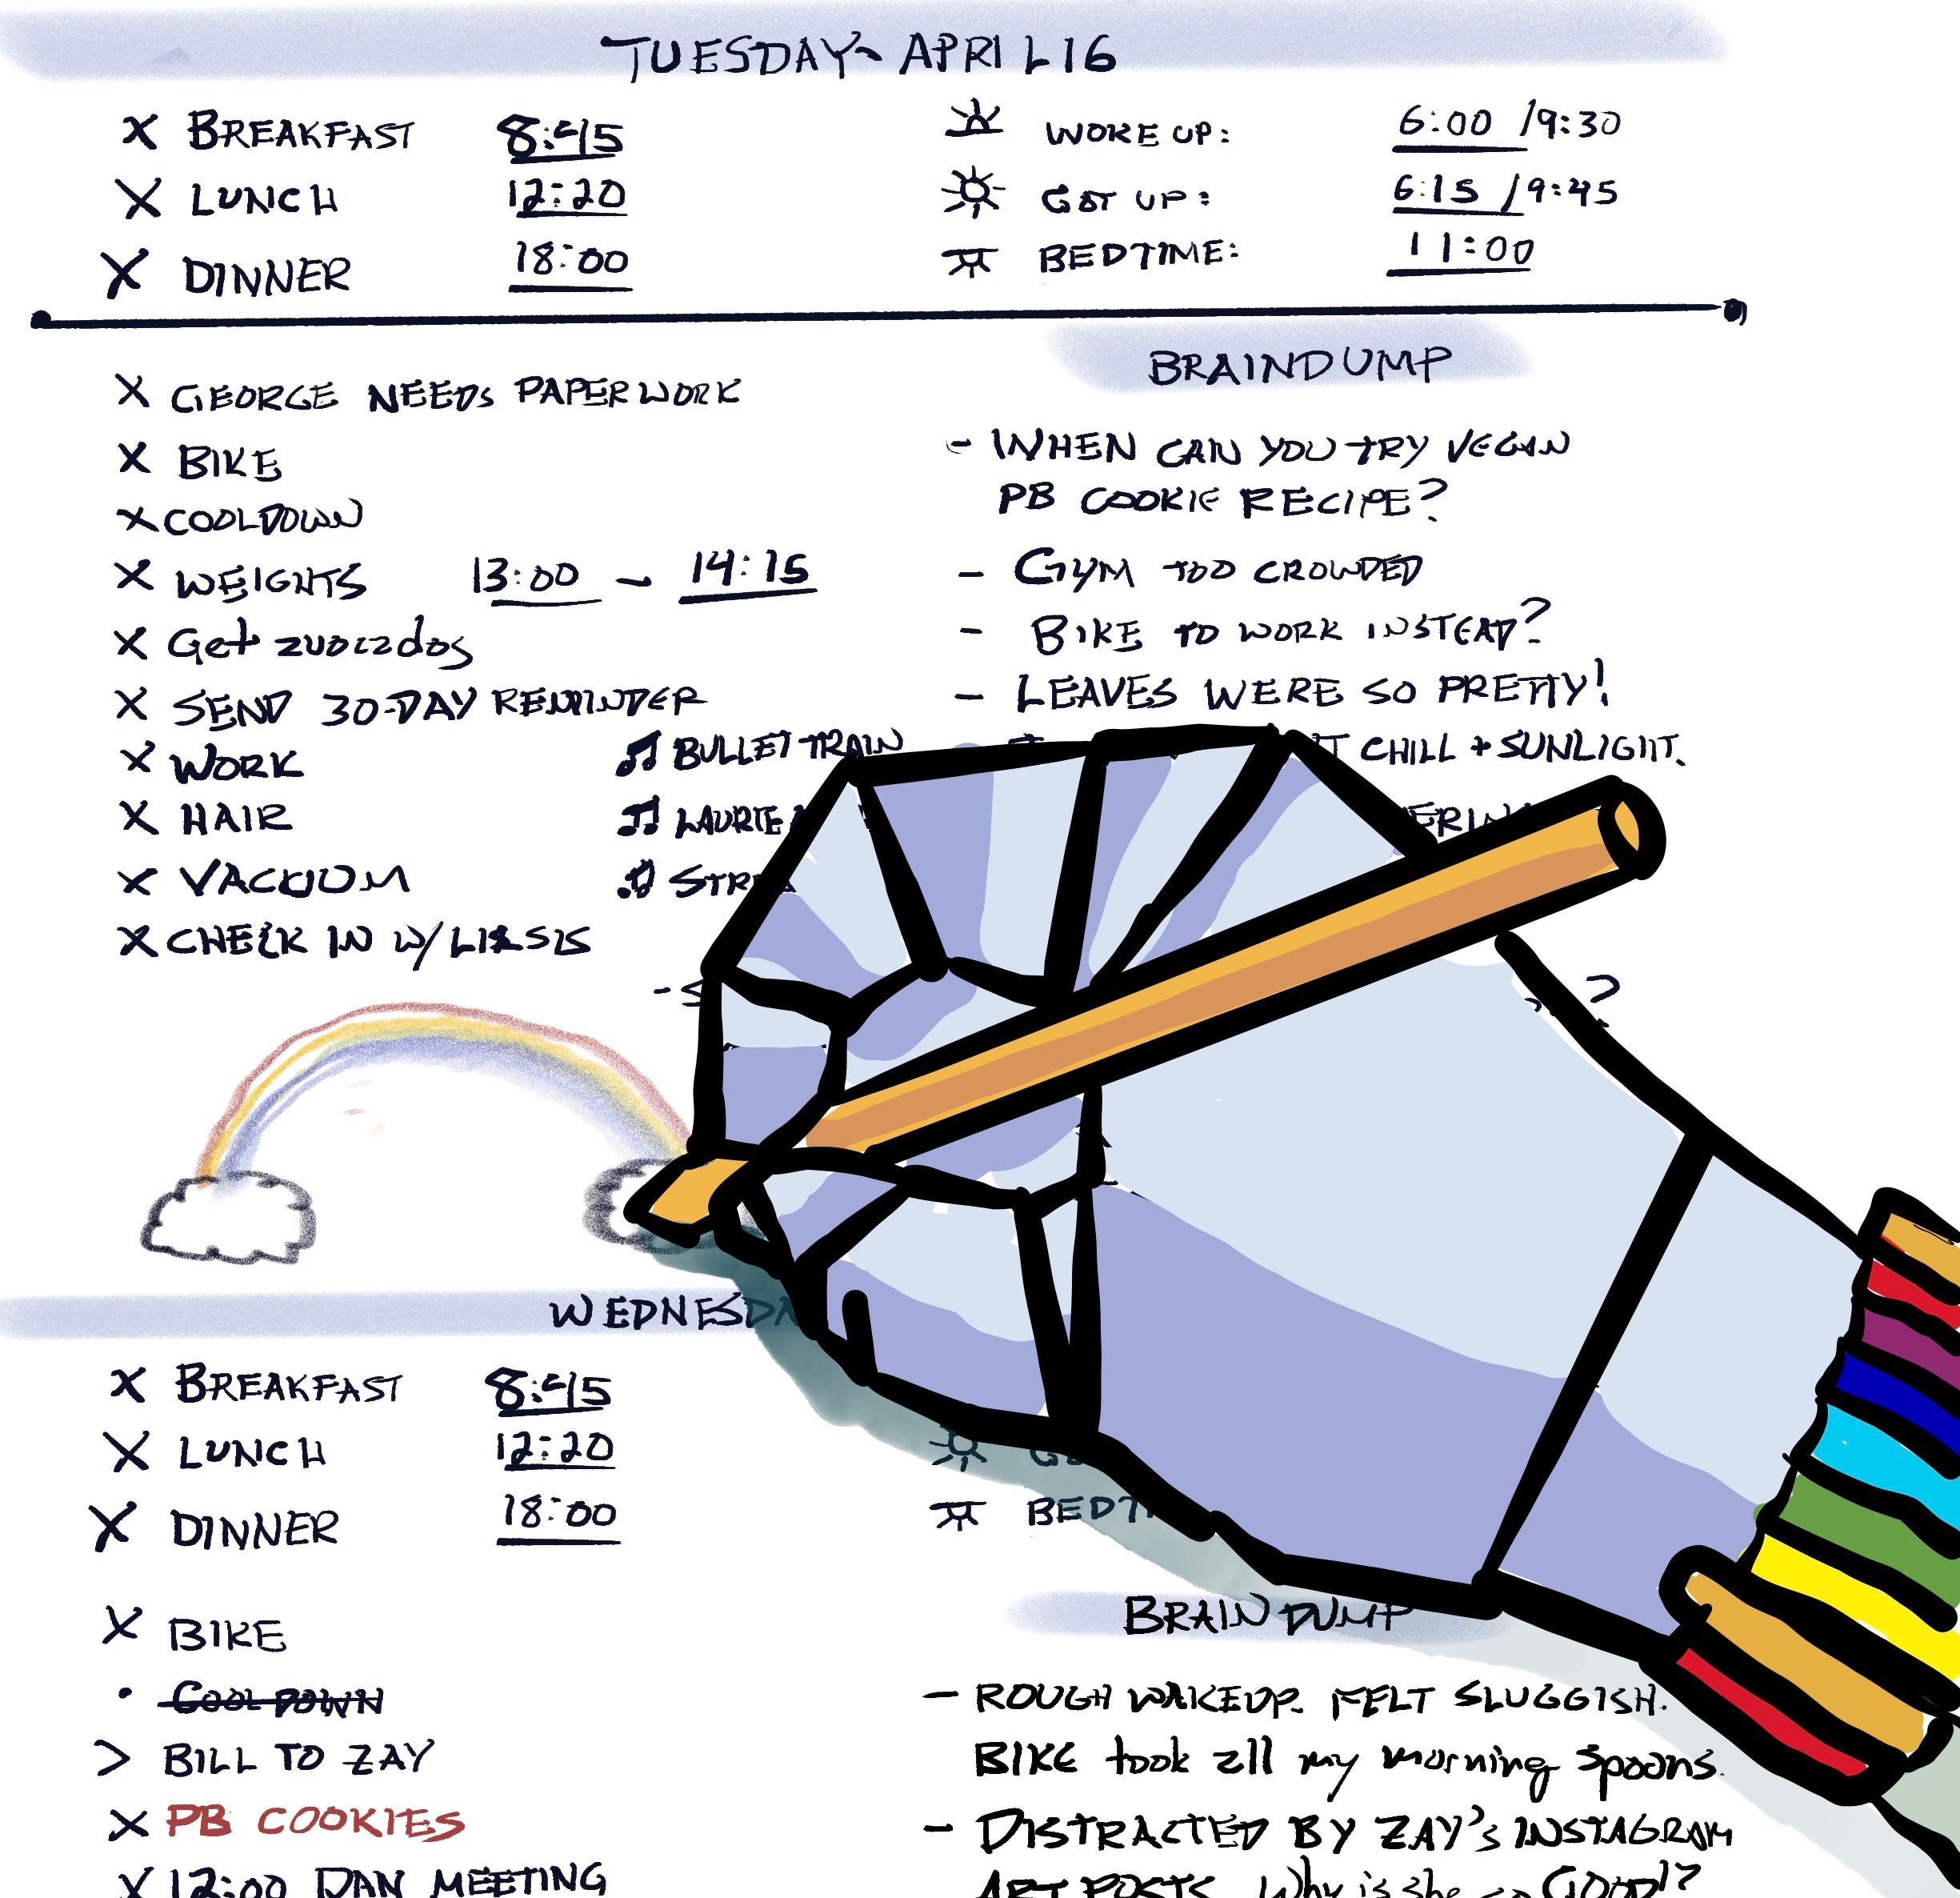 TUESDAY - APRIL 16
X BREAKFAST 8:45
X LUNCH 12:20
X DINNER 18:00
WOKE UP: 6:00 / 9:30
GOT UP: 6:15 / 9:45
BEDTIME: 11:00
X GEORGE NEEDS PAPERWORK
X BIKE
X COOLDOWN
X WEIGHTS 13:00 - 14:15
X Get avocados
X SEND 30-DAY REMINDER
X WORK
X HAIR
X VACUUM
X CHECK IN W/
♫ BULLET TRAIN
♫ LAURIE
BRAINDUMP
- WHEN CAN YOU TRY VEGAN
PB COOKIE RECIPE?
- GYM TOO CROWDED
- BIKE TO WORK INSTEAD?
- LEAVES WERE SO PRETTY!
CHILL + SUNLIGHT.
?
X BREAKFAST 8:45
X LUNCH 12:20
X DINNER 18:00
X BIKE
• COOLDOWN
> BILL TO ZAY
X PB COOKIES
X 12:00 DAN MEETING
BRAINDUMP
- ROUGH WAKEUP. FELT SLUGGISH.
BIKE took all my morning spoons.
- DISTRACTED BY ZAY'S INSTAGRAM
ART POSTS. Why is she so GOOD!?